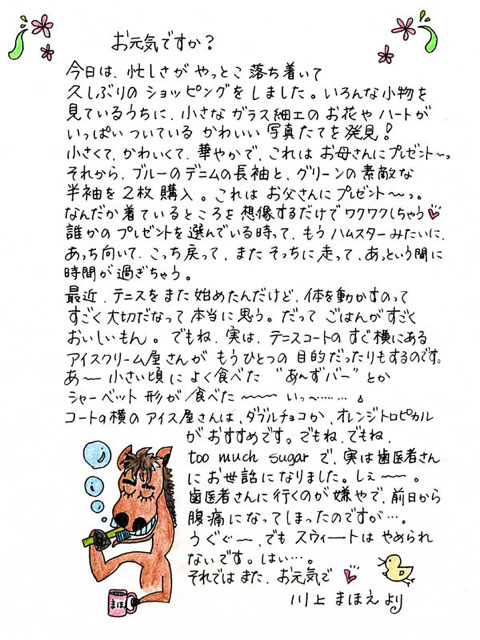 お元気ですか？
今日は、忙しさが やっとこ 落ち着いて
久しぶりの ショッピングを しました。いろんな小物を
見ているうちに、小さな ガラス細工の お花や ハートが
いっぱいついている かわいい 写真たてを 発見！
小さくて、かわいくて、華やかで、これは お母さんにプレゼント〜っ
それから、ブルーのデニムの長袖と、グリーンの素敵な
半袖を2枚購入。これは お父さんにプレゼント〜っ。
なんだか着ているところを想像するだけでワクワクしちゃう
誰かの プレゼントを選んでいる時って、もうハムスターみたいに、
あっち向いて、こっち戻って、またそっちに走って、あっという間に
時間が過ぎちゃう。
最近、テニスをまた始めたんだけど、体を動かすのって
すごく大切だなって本当に思う。だって ごはんがすごく
おいしいもん。でもね、実は、テニスコートのすぐ横にある
アイスクリーム屋さんが もうひとつの 目的だったりもするのです。
あ〜 小さい頃に よく食べた “あ〜ずバー”とか
シャーベット 形が食べた〜〜〜 いっ〜……
コートの横のアイス屋さんは、ダブルチョコか、オレンジトロピカル
がおすすめです。でもね、でもね、
too much sugar で、実は歯医者さん
にお世話になりました。しぇ〜〜。
歯医者さんに行くのが嫌やで、前日から
腹痛になってしまったのですが…。
うぐぐ〜、でもスウィートはやめられ
ないです。はい…。
それではまた、お元気で
川上 まほえ より
まほ